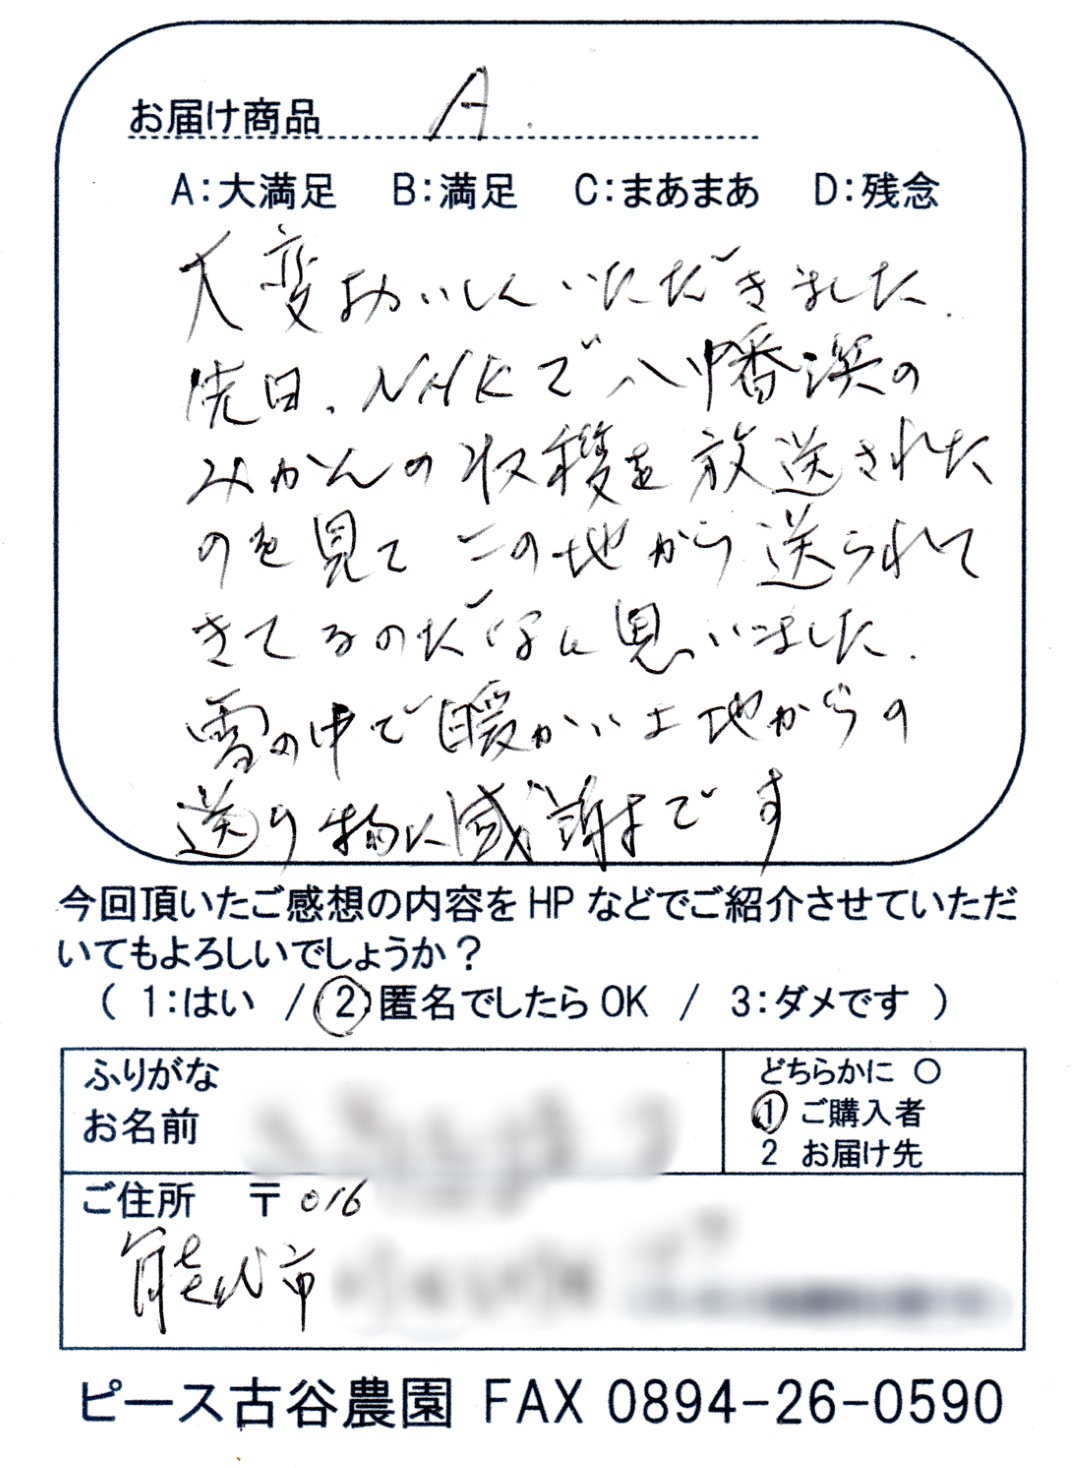 お届け商品 A.
A:大満足 B:満足 C:まあまあ D:残念
大変おいしくいただきました.
先日、NHKで八幡浜の
みかんの収穫を放送された
のを見て この地から送られて
きてるのだなと思いました.
雪の中で暖かい土地からの
送り物に感謝です
今回頂いたご感想の内容をHPなどでご紹介させていただ
いてもよろしいでしょうか?
( 1:はい / 2:匿名でしたらOK / 3:ダメです )
ふりがな
お名前
どちらかに ○
1 ご購入者
2 お届け先
ご住所 〒016
能代市
ピース古谷農園 FAX 0894-26-0590